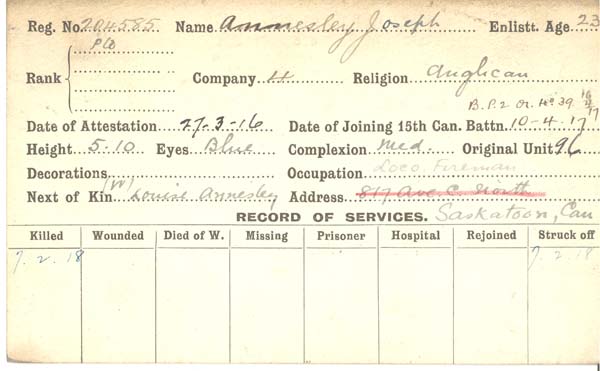 Reg. No. 204585 Name Annesley Joseph Enlistt. Age 23
Pte
Rank Company 4 Religion Anglican
B.P.2 Or. No 39 16/4/17
Date of Attestation 27-3-16 Date of Joining 15th Can. Battn. 10-4-17
Height 5-10 Eyes Blue Complexion Med Original Unit 96
Decorations Occupation Loco. Fireman
Next of Kin (W) Louise Annesley Address 817 Ave. C. North
RECORD OF SERVICES. Saskatoon, Can
Killed Wounded Died of W. Missing Prisoner Hospital Rejoined Struck off
7.2.18 7.2.18